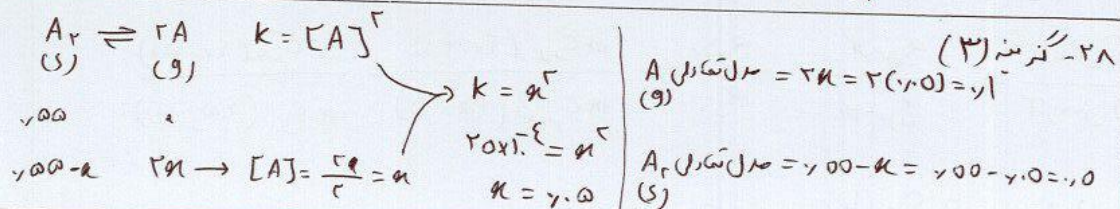 ۲۸- گزینه (۳)
A₂ ⇌ ۲A    K = [A]^۲
(s)    (g)
۰٫۵۵    ۰
۰٫۵۵-x    ۲x → [A] = ۲x/۲ = x
K = x^۲
۲۵×۱۰^-۴ = x^۲
x = ۰٫۰۵
مول تعادلی A (g) = ۲x = ۲(۰٫۰۵) = ۰٫۱
مول تعادلی A₂ (s) = ۰٫۵۵-x = ۰٫۵۵-۰٫۰۵ = ۰٫۵